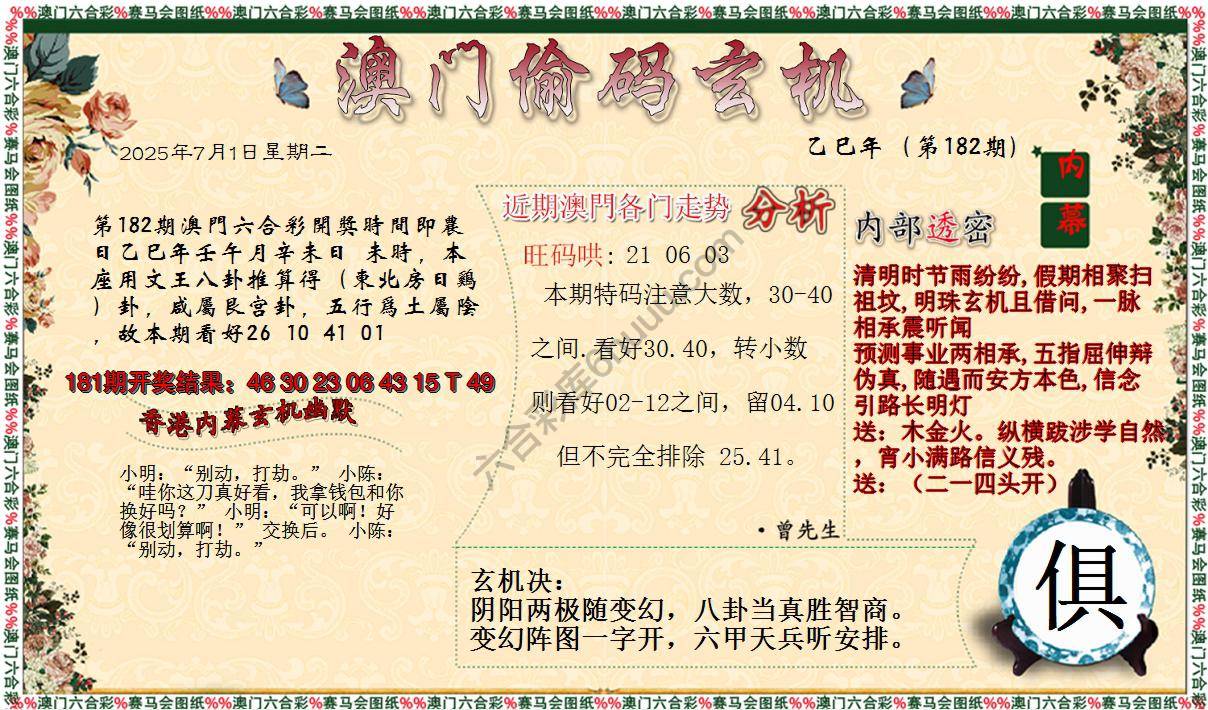 %%澳门六合彩%赛马会图纸%%澳门六合彩%赛马会图纸%%澳门六合彩%赛马会图纸%%澳门六合彩%赛马会图纸%%澳门六合彩%赛马会图纸%%澳门六合彩%赛马会图纸%%
澳门偷码玄机
2025年7月1日星期二
乙巳年（第182期）
内
幕
第182期澳門六合彩開獎時間即農
日乙巳年壬午月辛未日 未時，本
座用文王八卦推算得（東北房日鷄
）卦，咸屬艮宫卦，五行爲土屬陰
，故本期看好26 10 41 01
181期开奖结果：46 30 23 06 43 15 T 49
香港内幕玄机幽默
小明：“别动，打劫。” 小陈：
“哇你这刀真好看，我拿钱包和你
换好吗？” 小明：“可以啊！好
像很划算啊！” 交换后。 小陈：
“别动，打劫。”
近期澳門各门走势 分析
旺码哄: 21 06 03
本期特码注意大数，30-40
之间.看好30.40，转小数
则看好02-12之间，留04.10
但不完全排除 25.41。
·曾先生
内部透密
清明时节雨纷纷,假期相聚扫
祖坟,明珠玄机且借问,一脉
相承震听闻
预测事业两相承,五指屈伸辩
伪真,随遇而安方本色,信念
引路长明灯
送：木金火。纵横跋涉学自然
，宵小满路信义残。
送：（二一四头开）
玄机决：
阴阳两极随变幻，八卦当真胜智商。
变幻阵图一字开，六甲天兵听安排。
俱